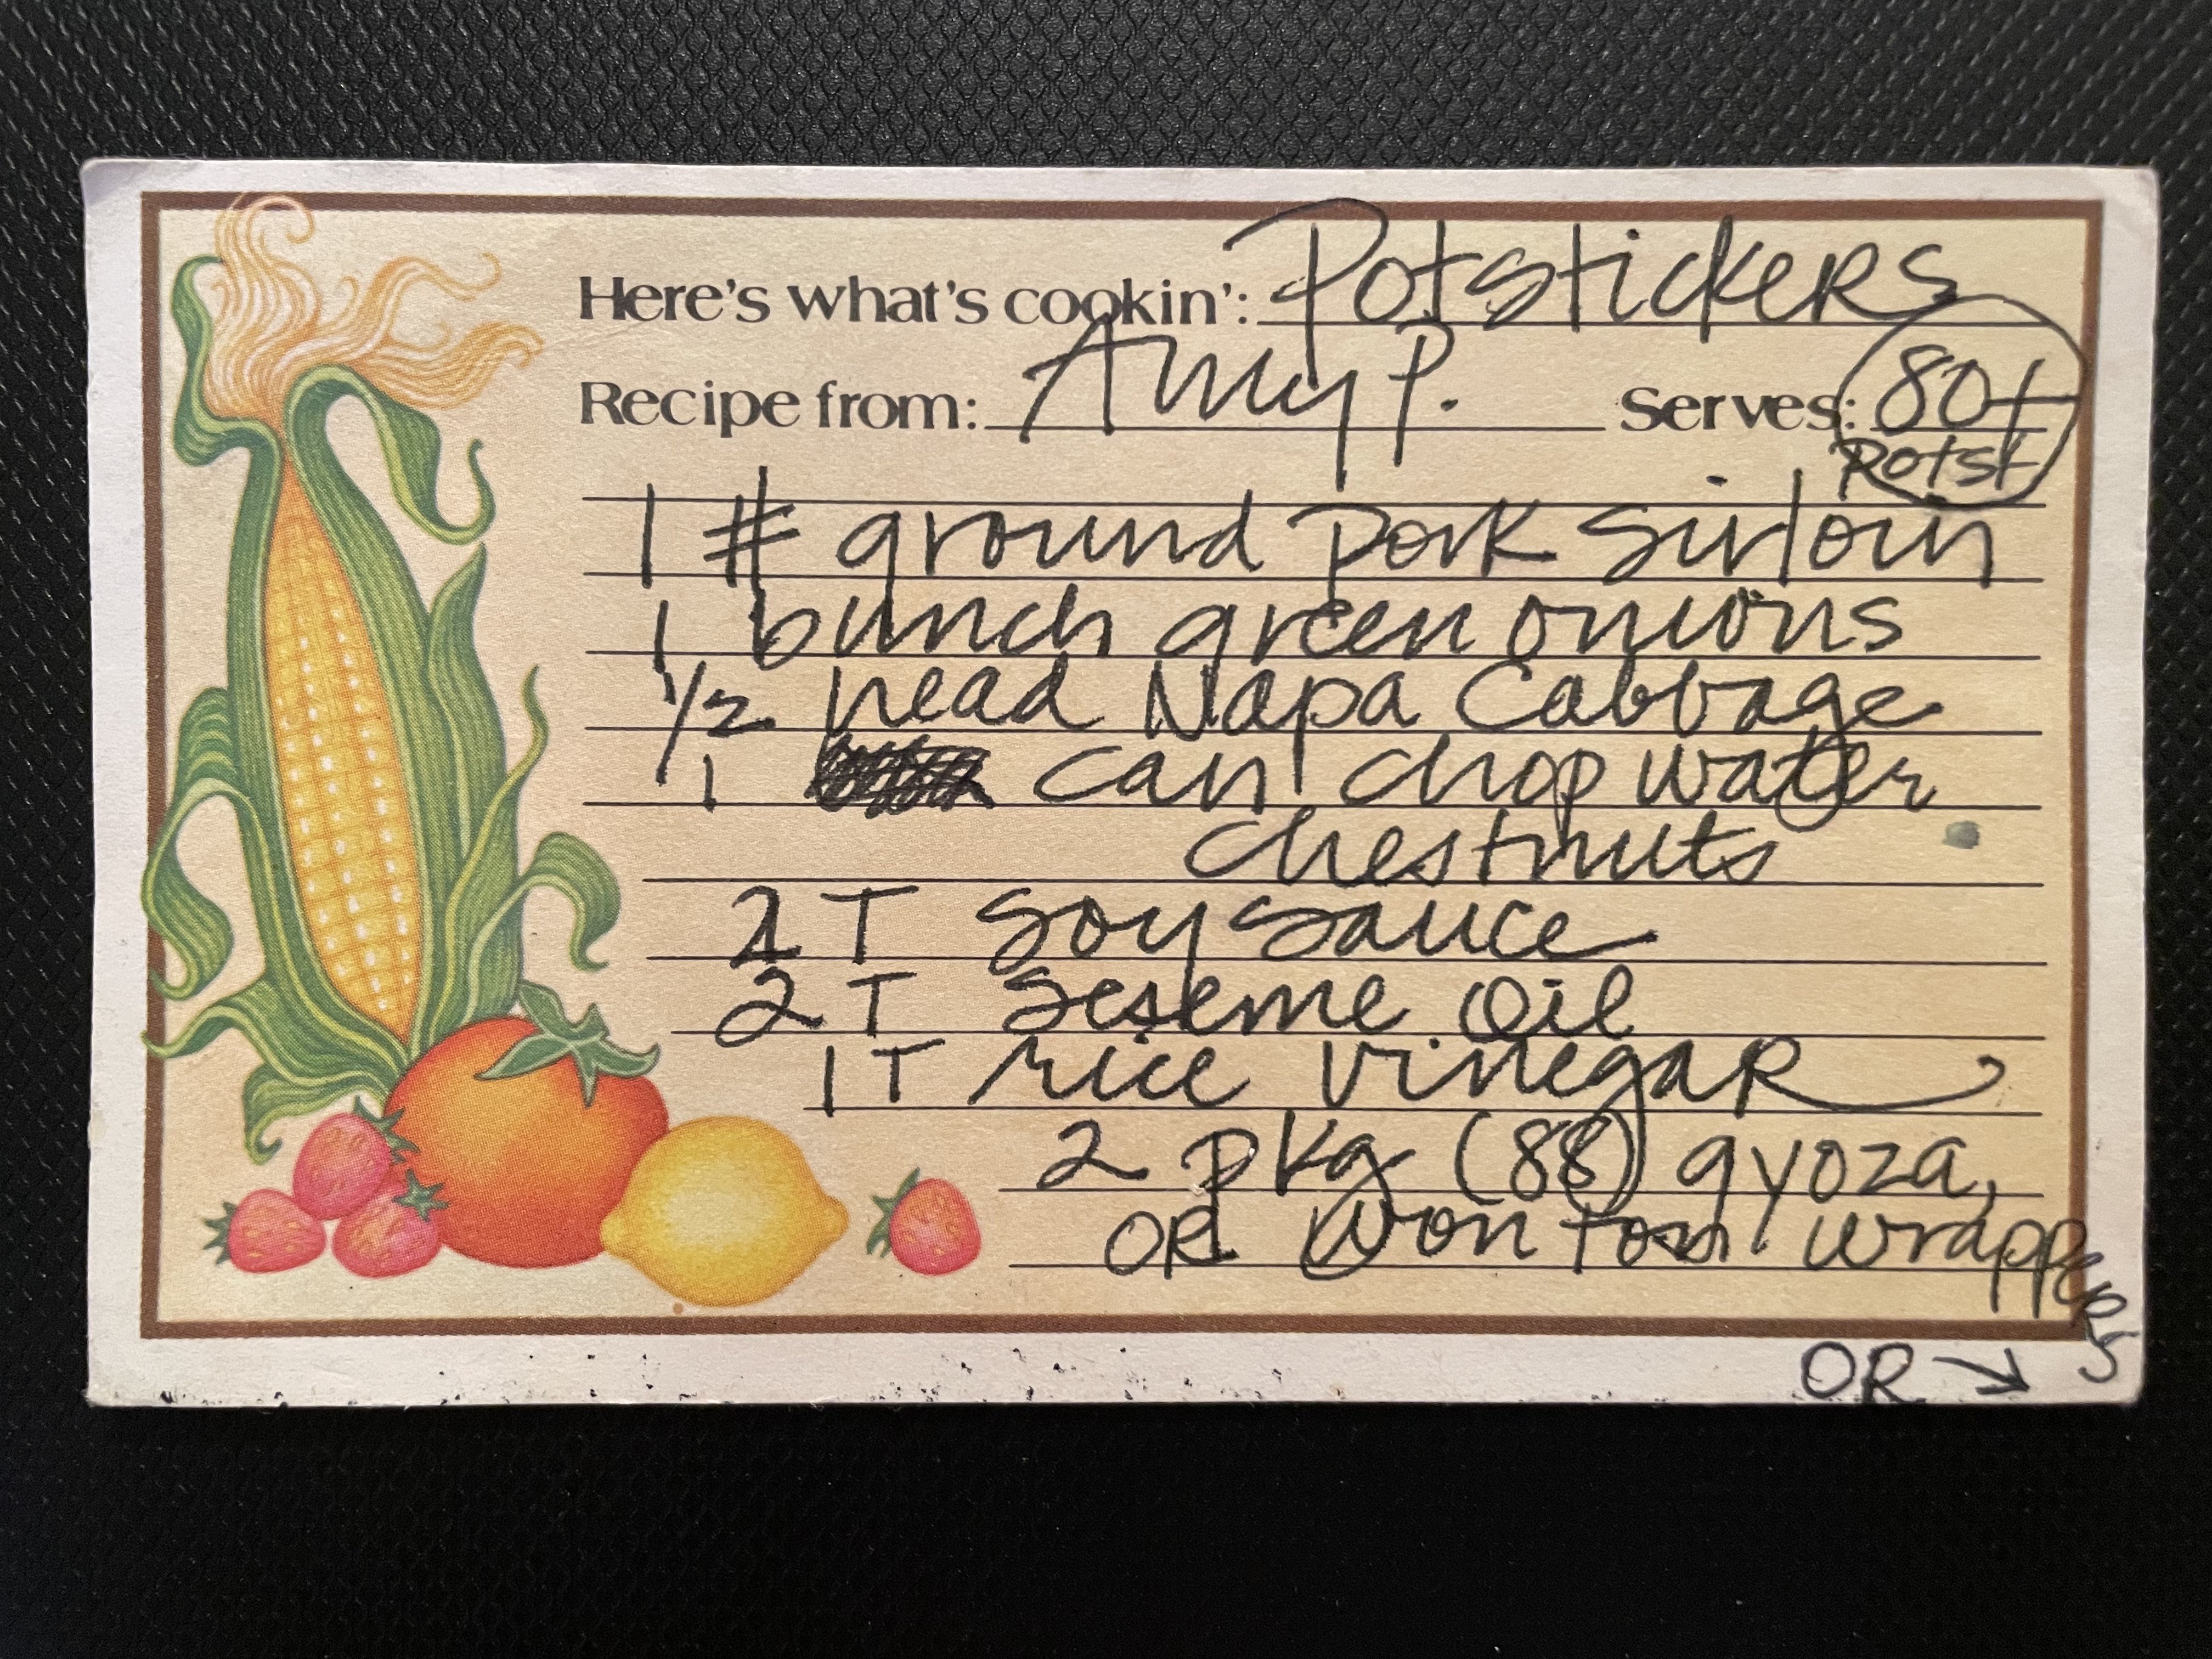 Here's what's cookin': Potstickers
Recipe from: Amy P. Serves: 80+
Potst
1 # ground pork sirloin
1 bunch green onions
1/2 head Napa Cabbage
1 can chop water
chestnuts
2 T soy sauce
2 T seseme oil
1 T rice vinegar
2 pkg (88) gyoza,
OR Won ton wrappers
OR →